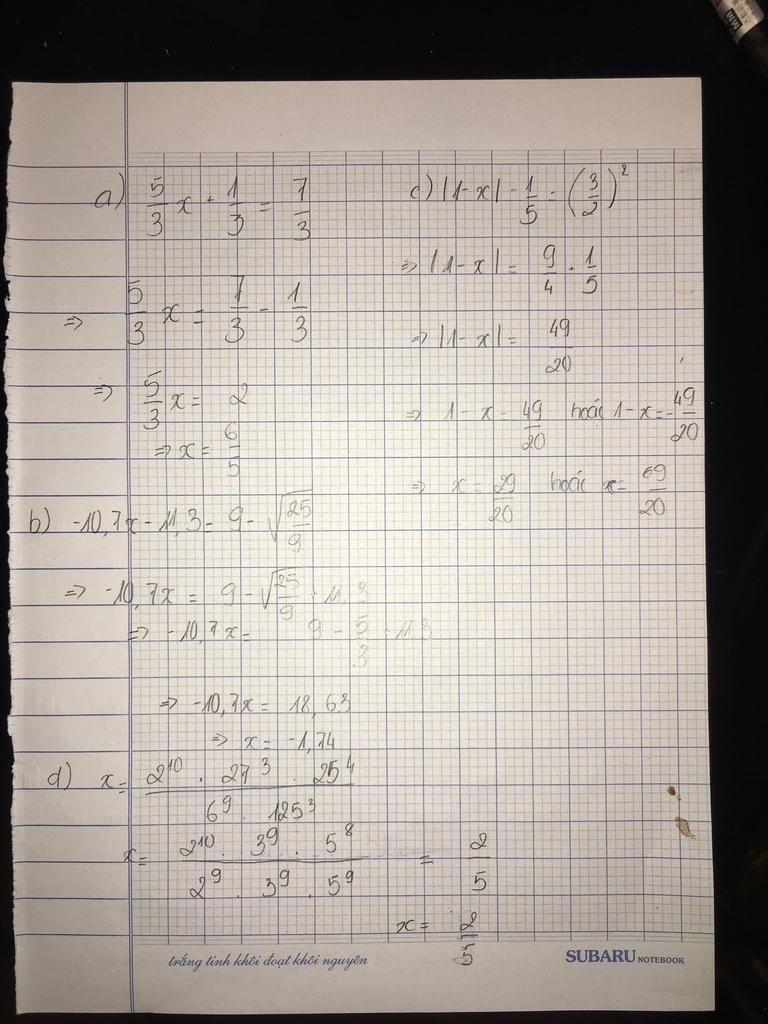 a) 5/3 x + 1/3 = 7/3
=> 5/3 x = 7/3 - 1/3
=> 5/3 x = 2
=> x = 6/5
b) -10,7x - 11,3 = 9 - √(25/9)
=> -10,7x = 9 - √(25/9) + 11,3
=> -10,7x = 9 - 5/3 + 11,3
=> -10,7x = 18,63
=> x = -1,74
c) |1-x| - 1/5 = (3/2)²
=> |1-x| = 9/4 + 1/5
=> |1-x| = 49/20
=> 1-x = 49/20 hoặc 1-x = -49/20
=> x = 29/20 hoặc x = 69/20
d) x = (2¹⁰ . 27³ . 25⁴)/(6⁹ . 125³)
x = (2¹⁰ . 3⁹ . 5⁸)/(2⁹ . 3⁹ . 5⁹) = 2/5
x = 2/5
trắng tinh khôi đoạt khôi nguyên
SUBARU NOTEBOOK